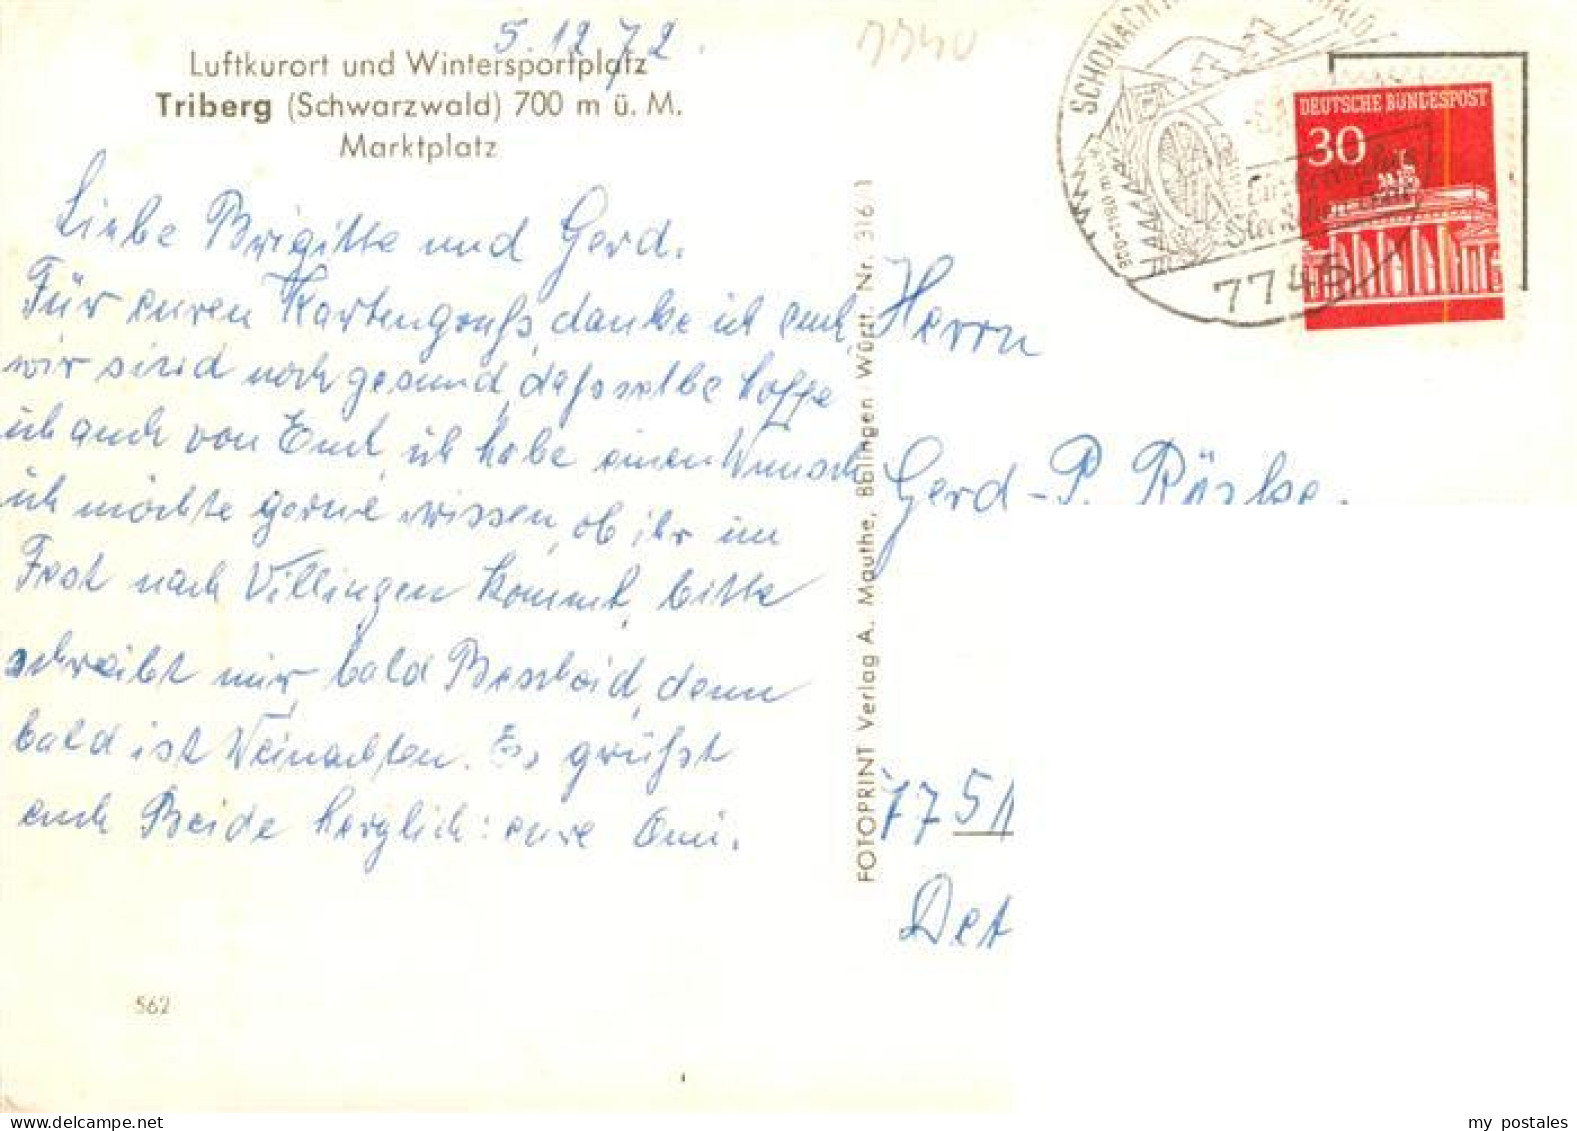 5.12.72.
Luftkurort und Wintersportplatz
Triberg (Schwarzwald) 700 m ü. M.
Marktplatz
Liebe Brigitte und Gerd.
Für euren Kartengruß, danke ich euch,
wir sind noch gesund, daßselbe hoffe
ich auch von Euch, ich habe einen Wunsch
ich möchte gerne wissen, ob ihr im
Fest nach Villingen kommt, bitte
schreibt mir bald Bescheid, denn
bald ist Weinachten. Es grüßt
euch Beide herzlich: eure Omi.
562
FOTOPRINT Verlag A. Mauthe, Balingen Württ. Nr. 316/1
7740
SCHONACH
7745
DEUTSCHE BUNDESPOST
30
Herrn
Gerd-P. Röske.
7751
Det
my postales
www.delcampe.net